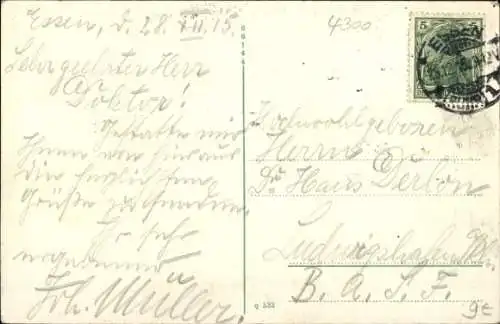 Essen, d. 28. VII. 15.
Sehr geehrter Herr
Doktor!
Gestatte mir
Ihnen von hier aus
die herzlichsten
Grüße zu senden.
Ihr sehr
ergebener
Joh. Müller.
66144
4300
5
ESSEN
1
Hochwohlgeboren
Herrn
Dr Hans
Ludwigshafen
B. A. S. F.
q 332
9t